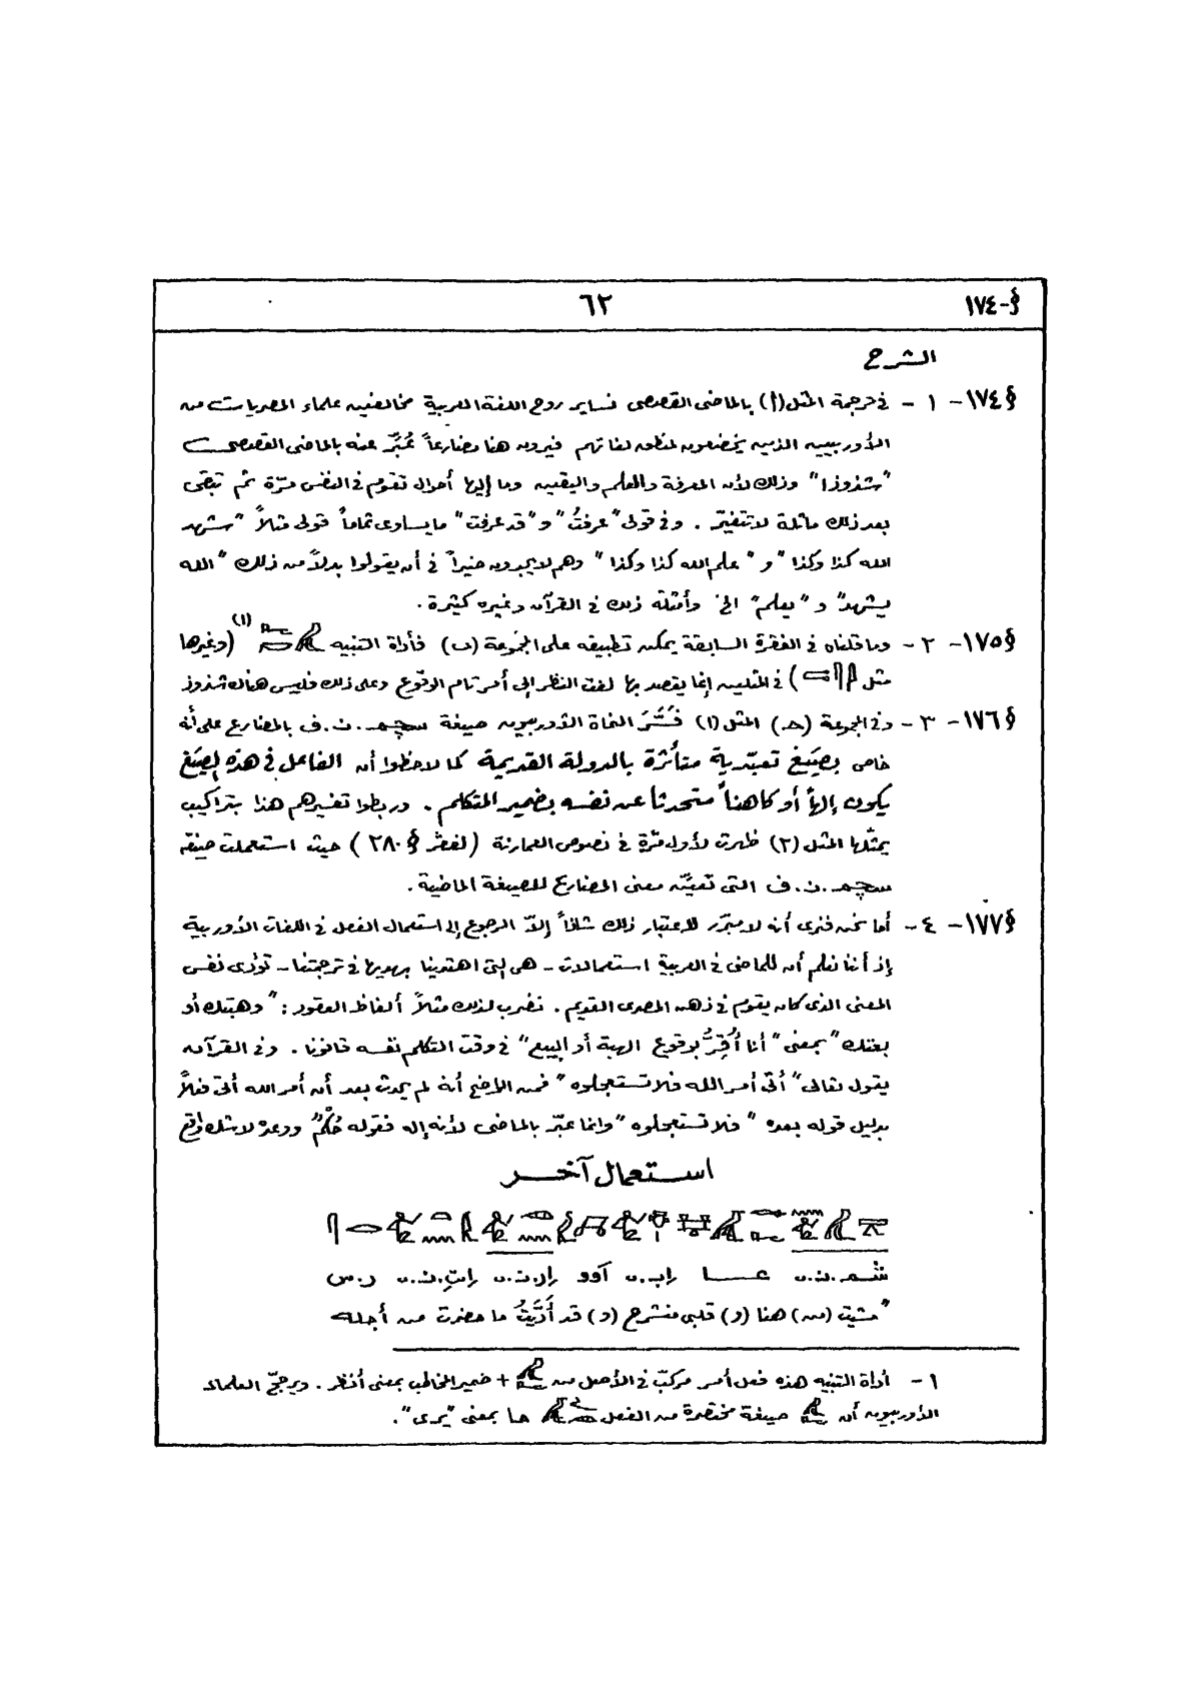 §-١٧٤
٦٢
الشرح
§١٧٤- ١ - في ترجمة المثل (أ) بالماضى القصصى نساير روح اللغة العربية مخالفين علماء المصريات من
الأوربيين الذين يخضعون لمنطق لغاتهم فيرون هنا مضارعاً عُبِّر عنه بالماضى القصصى
"شذوذا" وذلك لأن المعرفة والعلم واليقين وما إليها أحوال تقوم فى النفس مرّة ثم تبقى
بعد ذلك ماثلة لا تتغيّر . وفى قولى "عرفتُ" و "قد عرفت" ما يساوى تماماً قولى مثلاً "شهد
الله كذا وكذا" و "علم الله كذا وكذا" وهم لا يجدون ضيراً فى أن يقولوا بدلاً من ذلك "الله
يشهد" و "يعلم" الخ وأمثلة ذلك فى القرآن وغيره كثيرة .
§١٧٥- ٢ - وما قلناه فى الفقرة السابقة يمكن تطبيقه على المجموعة (ب) فأداة التنبيه (١) (وغيرها
مثل ) فى المثلين إنما يقصد بها لفت النظر إلى أمر تام الوقوع وعلى ذلك فليس هناك شذوذ
§١٧٦- ٣ - وفى المجموعة (حـ) المثل (١) فَسَّرَ النحاة الأوربيون صيغة سچم.ن.ف بالمضارع على أنه
خاص بصِيَغ تعبّدية متأثرة بالدولة القديمة كما لاحظوا أن الفاعل فى هذه الصِيَغ
يكون إلهاً أو كاهناً متحدثا عن نفسه بضمير المتكلم . وربطوا تفسيرهم هذا بتراكيب
يمثّلها المثل (٢) ظهرت لأول مرّة فى نصوص العمارنة ( § ٢٨٠ ) حيث استعملت صيغة
سچم.ن.ف التى تعيّن معنى المضارع للصيغة الماضية .
§١٧٧- ٤ - أما نحن فنرى أنه لا مبرّر لاعتبار ذلك شاذاً إلاّ الرجوع إلى استعمال الفعل فى اللغات الأوربية
إذ أننا نعلم أن للماضى فى العربية استعمالات - هى التى اهتدينا بهديها فى ترجمتنا - تؤدى نفس
المعنى الذى كان يقوم فى ذهن المصرى القديم . نضرب لذلك مثلاً ألفاظ العقود : "وهبتك أو
بعتك" بمعنى "أنا أُقِرُّ بوقوع الهبة أو البيع" فى وقت التكلم نفسه قانونا . وفى القرآن
يقول تعالى "أتى أمر الله فلا تستعجلوه" فمن الواضح أنه لم يحدث بعد أن أمر الله أتى فعلاً
بدليل قوله بعده "فلا تستعجلوه" وإنما عبّر بالماضى لأنه إله فقوله حُكْمٌ ووعده لا شك واقع
استعمال آخر
شم.ن.ى عا إب.ى آوو إر.ن.ى إتِ.ن.ى ر.س
"مشيت (من) هنا (و) قلبى منشرح (و) قد أَدَّيْتُ ما حضرت من أجله
١ - أداة التنبيه هذه فعل أمر مركّب فى الأصل من + ضمير المخاطب بمعنى أنظر . ويرجحّ العلماء
الأوربيون أن صيغة مختصرة من الفعل ما بمعنى "يرى" .